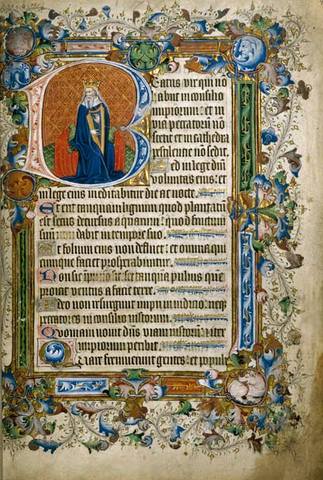 Beatus vir qui nō
abiit in consilio
impiorum: et in
via peccatorū nō
stetit et in cathedra
sedit.
Sed in lege dn̄i
voluntas eius: et
in lege eius meditabitur die ac nocte.
Et erit tanquam lignum quod plantatū
est secus decursus aquarum: quod fructum
suum dabit in tempore suo.
Et folium eius non defluet: et omnia que
cunque faciet prosperabuntur.
Non sic impii non sic sed tanquā pulvis quē
proicit ventus a facie terre.
Ideo non resurgunt impii in iudicio: neqz
peccatores in consilio iustorum.
Quoniam novit dn̄s viam iustorū: et iter
impiorum peribit.
Quare fremuerunt gentes: et populi